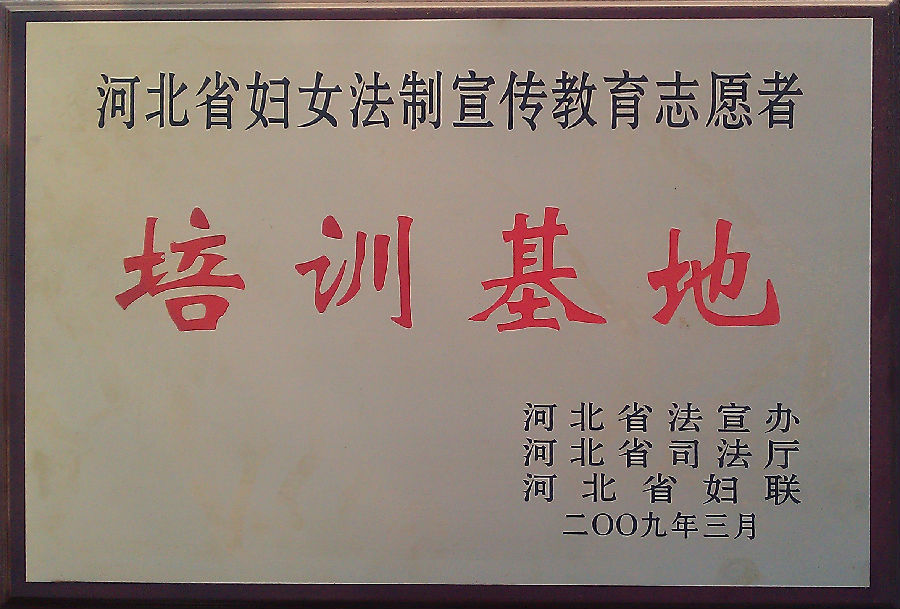 河北省妇女法制宣传教育志愿者
培训基地
河北省法宣办
河北省司法厅
河北省妇联
二〇〇九年三月